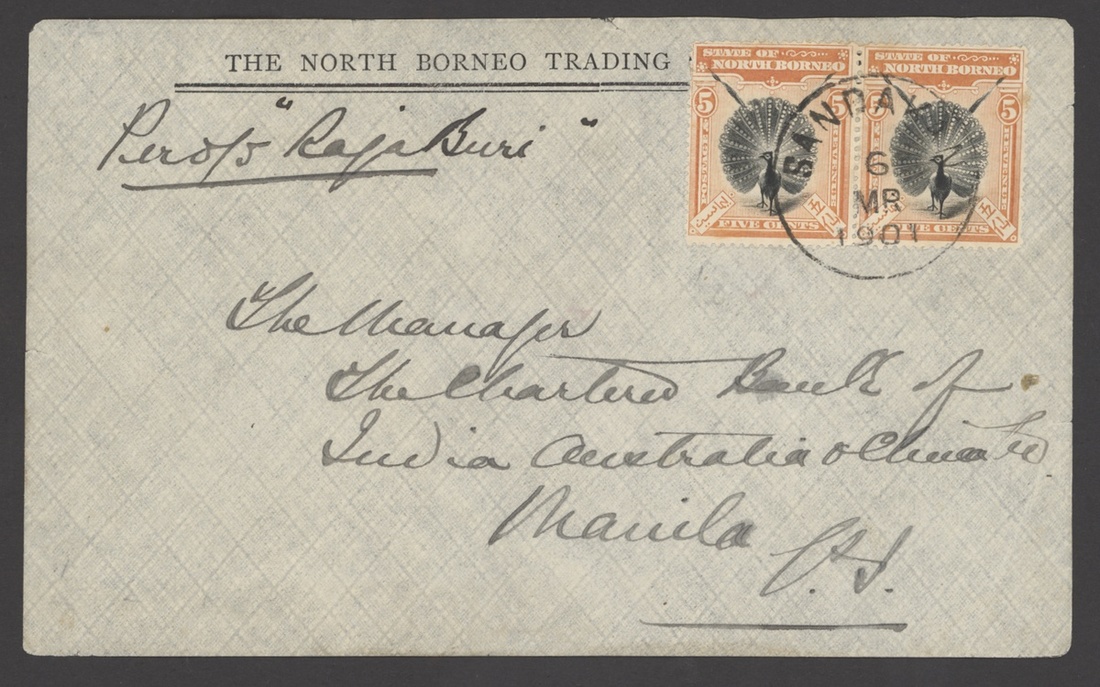 THE NORTH BORNEO TRADING
Per S/S "Raja Buri"
STATE OF NORTH BORNEO
5
5
POSTAGE &
FIVE CENTS
STATE OF NORTH BORNEO
5
5
FIVE CENTS
SANDAKAN
6
MR
1901
The Manager
The Chartered Bank of
India Australia & China Ltd
Manila
P.I.